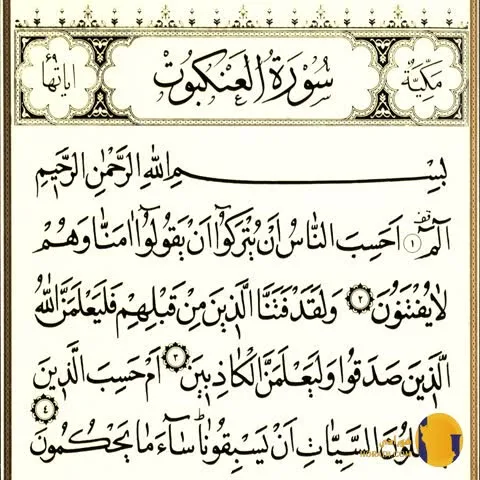 مكية سورة العنكبوت اياتها ٦٩
بسم الله الرحمن الرحيم
الم ۝١ اَحَسِبَ النَّاسُ اَنْ يُتْرَكُوا اَنْ يَقُولُوا اٰمَنَّا وَهُمْ
لَا يُفْتَنُونَ ۝٢ وَلَقَدْ فَتَنَّا الَّذِينَ مِنْ قَبْلِهِمْ فَلَيَعْلَمَنَّ اللّٰهُ
الَّذِينَ صَدَقُوا وَلَيَعْلَمَنَّ الْكَاذِبِينَ ۝٣ اَمْ حَسِبَ الَّذِينَ
السَّيِّاٰتِ اَنْ يَسْبِقُونَاۜ سَٓاءَ مَا يَحْكُمُونَ ۝٤